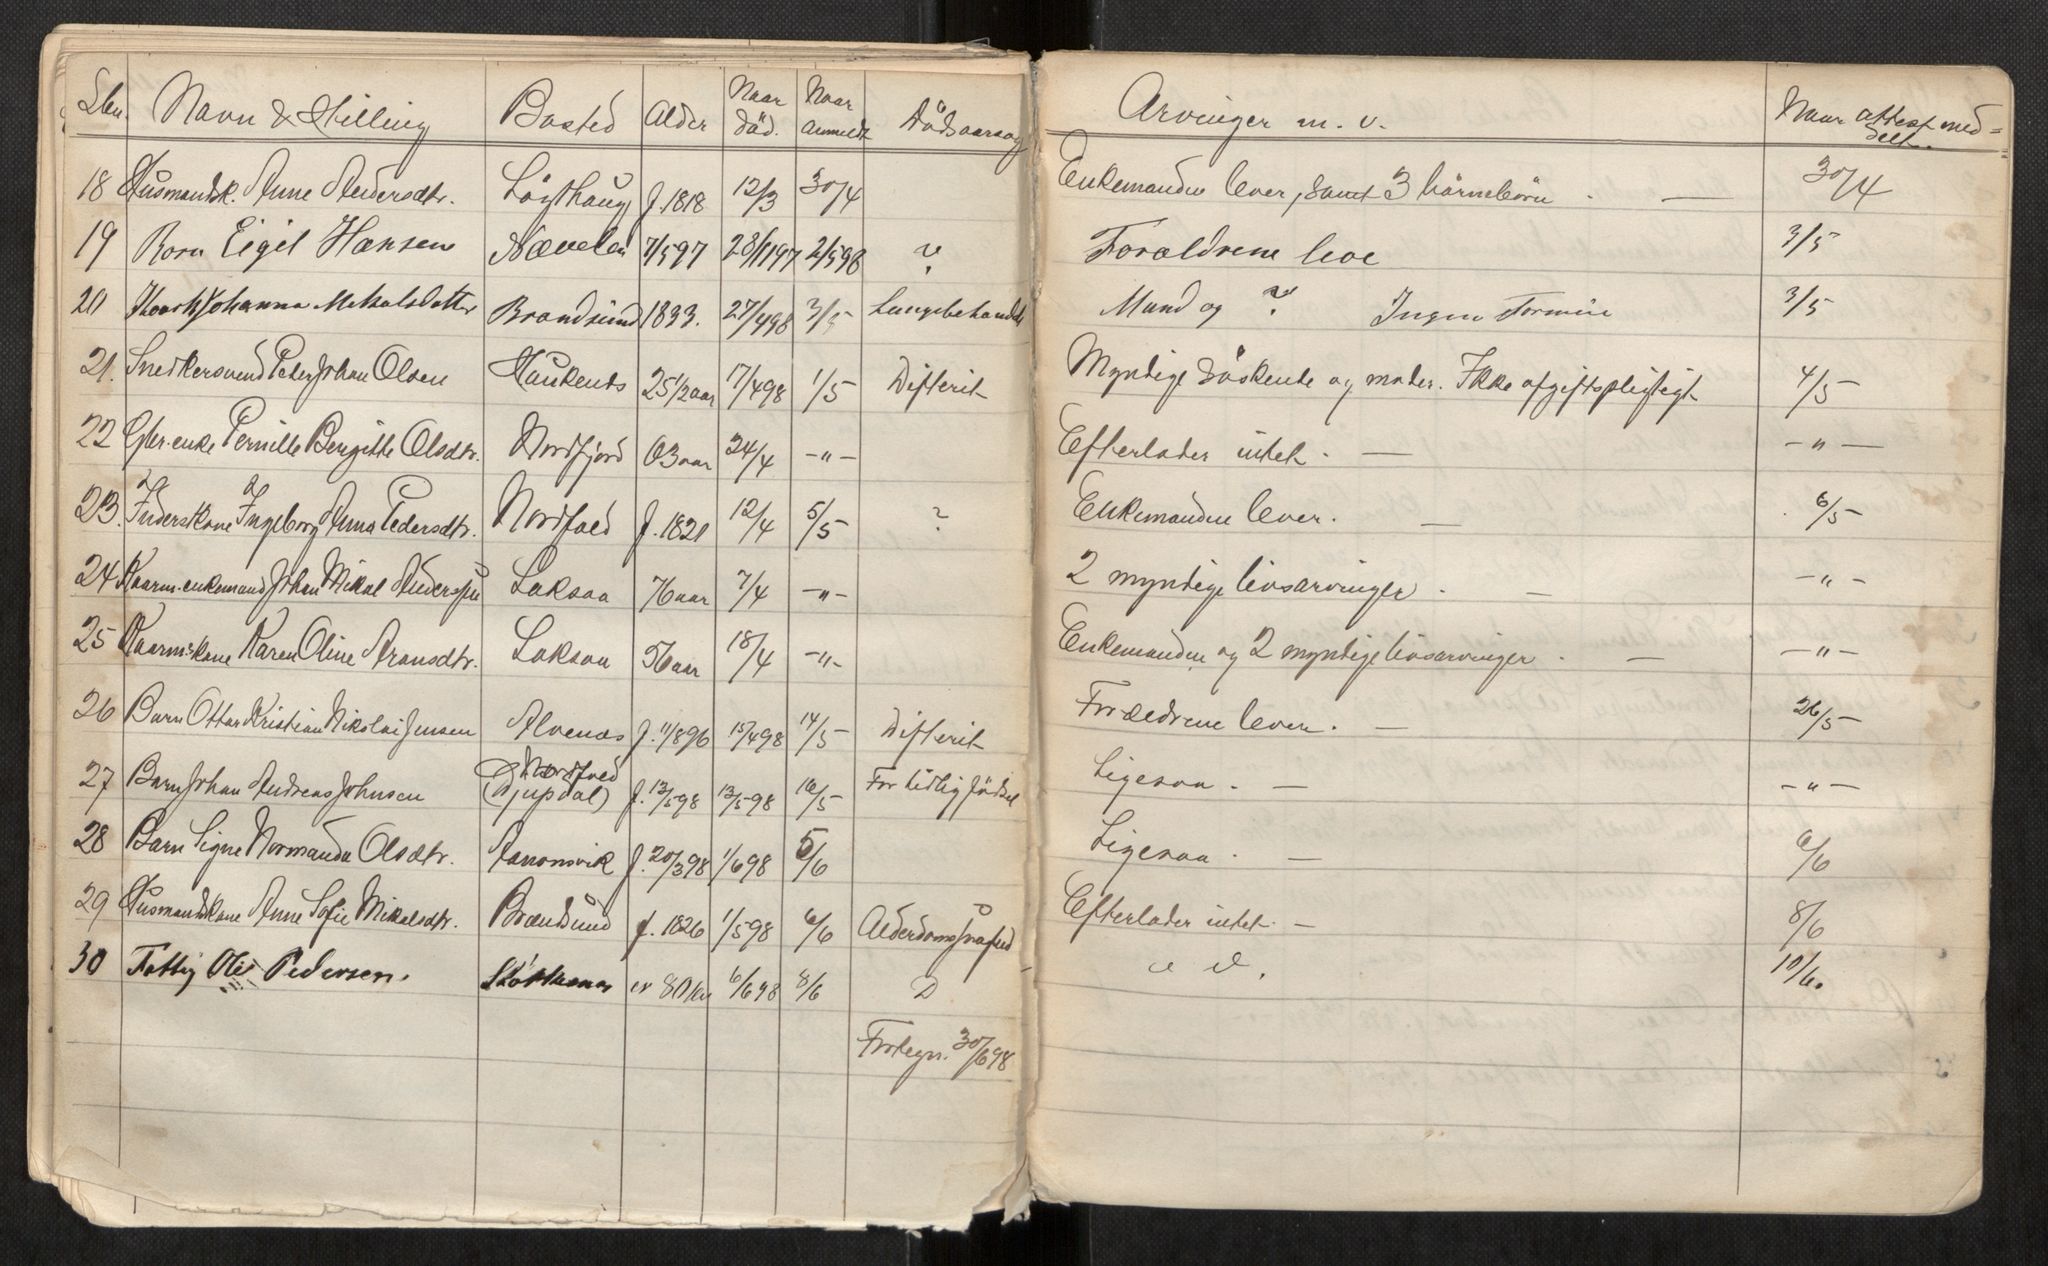 Lbn. Navn & Stilling Bosted Alder Naar död. Naar anmeldt Dödsaarsag Arvinger m. v. Naar attest meddelt.
18 Husmandsk. Anne Andersdtr. Lögthaug f. 1818 12/3 30/4 Enkemanden lever, samt 3 börnebörn. — 30/4
19 Barn Eigil Hansen Nævelen 7/5 97 28/11 97 2/5 98 ? Forældrene leve 3/5
20 Johanna Mikalsdatter Brandsund 1833. 27/4 98 3/5 Mand og ? Ingen Formue 3/5
21. Snedkersvend Peder Johan Olsen Haukenes 25 1/2 aar 17/4 98 1/5 Difterit Myndige söskende og moder. Ikke afgiftspligtigt 4/5
22 Gbr.enke Pernille Bergitte Olsdtr. Nordfjord 63 aar 24/4 —"— Efterlader intet. — —"—
23. Inderstkone Ingeborg Anna Pedersdtr. Nordfold f. 1821 12/4 5/5 ? Enkemanden lever. — 6/5
24 Kaarm.enkemand Johan Mikal Andersen Laksaa 76 aar 7/4 —"— 2 myndige livsarvinger. — —"—
25 Kaarm.kone Karen Oline Aronsdtr. Laksaa 56 aar 18/4 —"— Enkemanden og 2 myndige livsarvinger. — —"—
26 Barn Ottar Kristian Nikolai Jensen Alvenes f. 11/8 96 15/4 98 14/5 Difterit Forældrene lever. — 26/5
27 Barn Johan Andreas Johnsen Nordfold (Djupdal) f. 13/5 98 13/5 98 16/5 For tidlig födsel Ligesaa. — —"—
28 Barn Signe Normanda Olsdtr. Aanonsvik f. 20/3 98 1/6 98 5/6 Ligesaa. — 6/6
29 Husmandskone Anne Sofie Mikalsdtr. Brændsund f. 1826 1/5 98 6/6 Alderdomssvaghed Efterlader intet. — 8/6
30 Fattig Ole Pedersen. 80 6/6 98 8/6 D 10/6.
Fortegn. 30/6 98